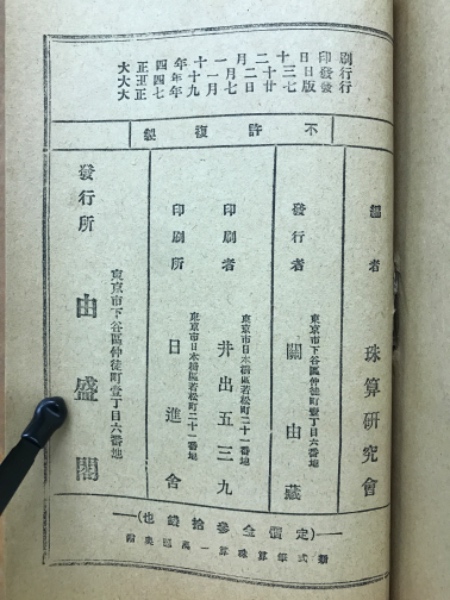 大正四年十一月二十日印刷
大正四年十一月二十三日發行
大正七年九月七日廿七版發行
不許複製
編者 珠算研究會
東京市下谷區仲徒町壹丁目六番地
發行者 關由藏
東京市日本橋區若松町二十一番地
印刷者 井出五三九
東京市日本橋區若松町二十一番地
印刷所 日進舍
東京市下谷區仲徒町壹丁目六番地
發行所 由盛閣
(定價金參拾錢也)
算珠算一萬題奥附